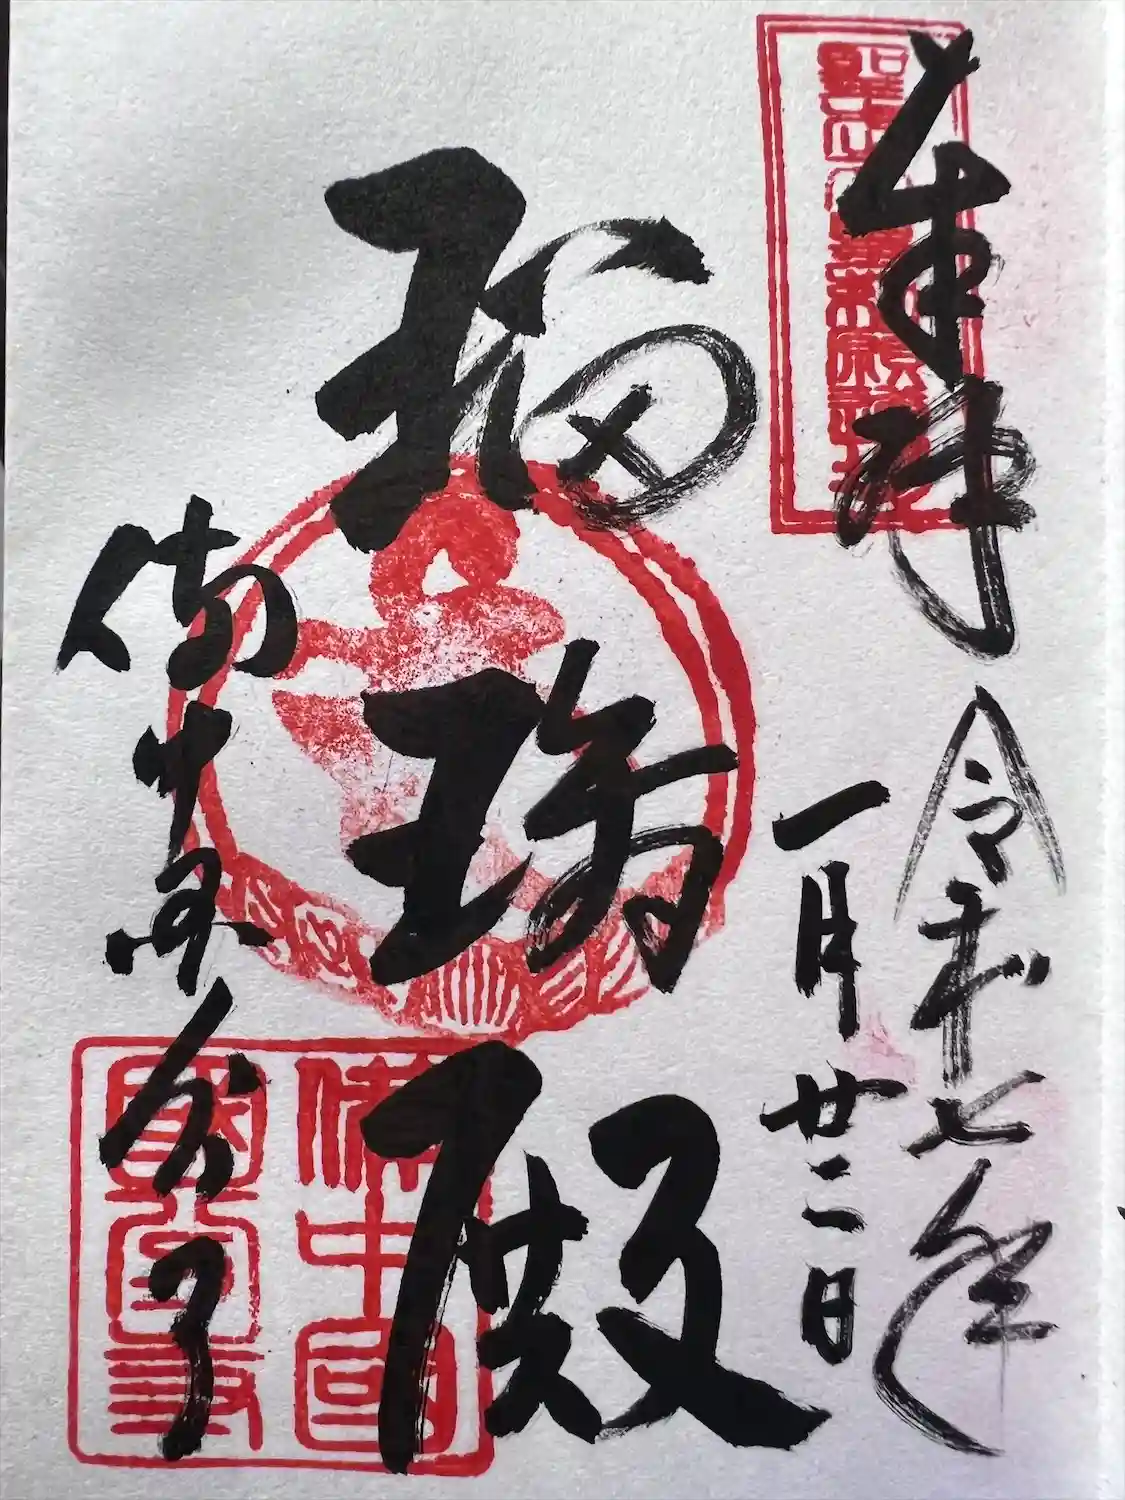 奉拝
令和七年
一月廿二日
瑠璃殿
備中国分寺
備中國
國分寺